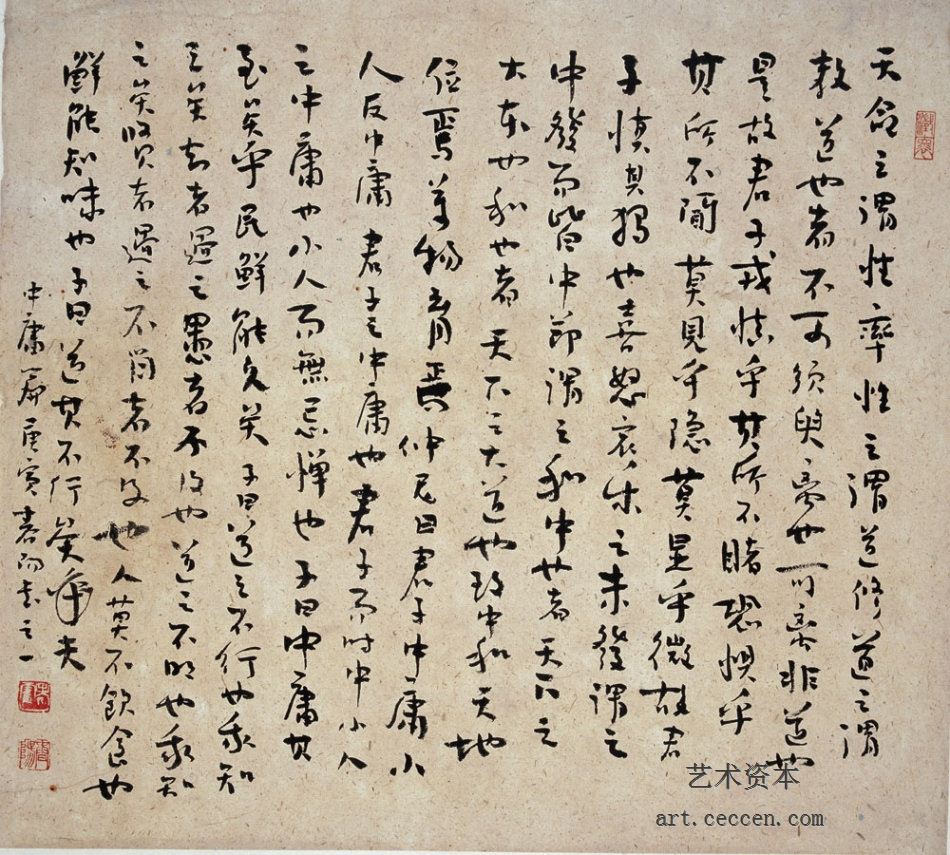 天命之謂性率性之謂道修道之謂
教道也者不可須臾離也可離非道也
是故君子戒慎乎其所不睹恐惧乎
其所不聞莫見乎隐莫显乎微故君
子慎其獨也喜怒哀乐之未發謂之
中發而皆中節謂之和中也者天下之
大本也和也者天下之大道也致中和天地
位焉萬物育焉仲尼曰君子中庸小
人反中庸君子之中庸也君子而时中小人
之中庸也小人而無忌惮也子曰中庸其
至矣乎民鮮能久矣子曰道之不行也我知
之矣知者過之愚者不及也道之不明也我知
之矣贤者過之不肖者不及也人莫不飲食也
鮮能知味也子曰道其不行矣乎夫
中庸 庚寅春 之一
艺术资本
art.ceccen.com